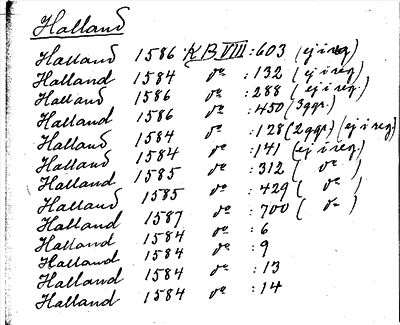 Halland
Halland 1586 KB VIII :603 (ej i reg)
Halland 1584 do :132 (ej i reg)
Halland 1586 do :288 (ej i reg.)
Halland 1586 do :450 (3ggr)
Halland 1584 do :128 (2ggr) (ej i reg)
Halland 1584 do :141 (ej i reg)
Halland 1585 do :312 ( do )
Halland 1585 do :429 ( do )
Halland 1587 do :700 ( do )
Halland 1584 do :6
Halland 1584 do :9
Halland 1584 do :13
Halland 1584 do :14